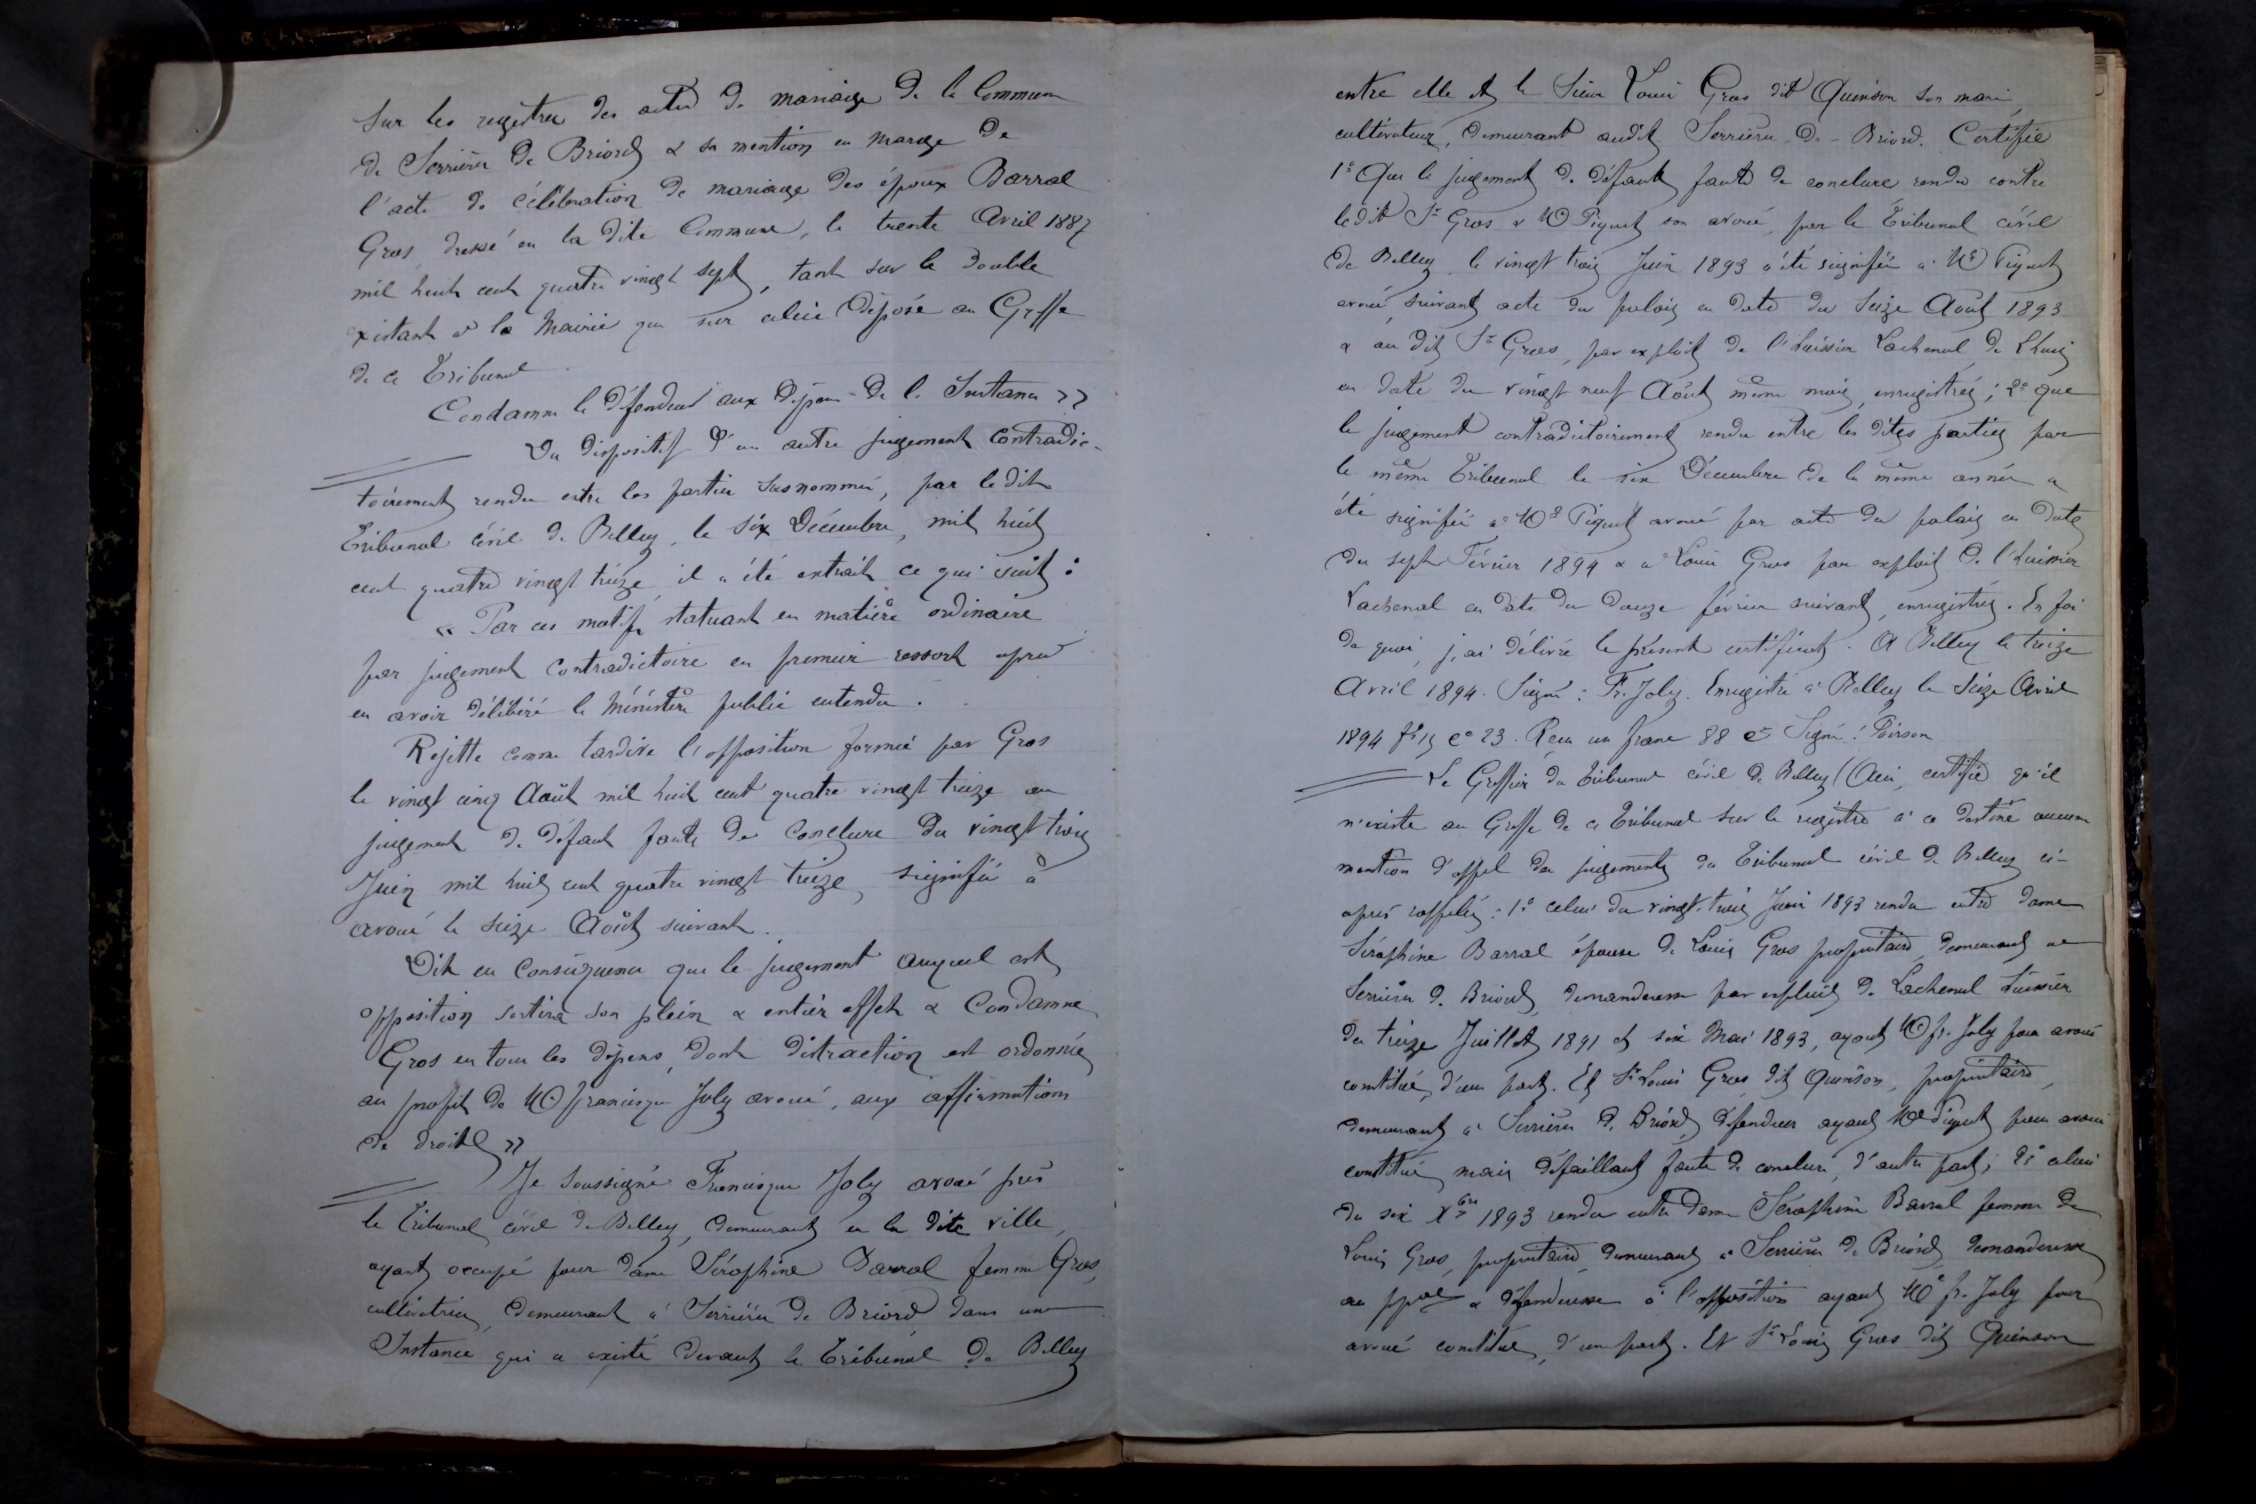 sur les registres des actes de mariage de la Commune
de Serrières de Briord & sa mention en marge de
l'acte de célébration de mariage des époux Barral
Gros dressé en la dite Commune, le trente Avril 1887
mil huit cent quatre vingt sept, tant sur le double
existant à la Mairie que sur celui déposé au Greffe
de ce Tribunal.
Condamne le défendeur aux dépens de l'Instance »
Du dispositif d'un autre jugement contradic-
toirement rendu entre les parties susnommées, par le dit
Tribunal civil de Belley, le six Décembre, mil huit
cent quatre vingt treize il a été extrait ce qui suit :
« Par ces motifs statuant en matière ordinaire
par jugement contradictoire en premier ressort après
en avoir délibéré le Ministère public entendu.
Rejette comme tardive l'opposition formée par Gros
le vingt cinq Août mil huit cent quatre vingt treize au
jugement de défaut faute de conclure du vingt trois
Juin mil huit cent quatre vingt treize, signifié à
avoué le seize Août suivant.
Dit en conséquence que le jugement auquel est
opposition sortira son plein & entier effet & Condamne
Gros en tous les dépens, dont distraction est ordonnée
au profit de Me Francisque Joly avoué, aux affirmations
de droit »
Je soussigné Francisque Joly avoué près
le Tribunal civil de Belley, demeurant en la dite ville,
ayant occupé pour dame Séraphine Barral femme Gros,
cultivatrice, demeurant à Serrières de Briord dans une
Instance qui a existé devant le Tribunal de Belley
entre elle et le Sieur Louis Gros dit Quinson son mari,
cultivateur, demeurant audit Serrières-de-Briord. Certifie
1° Que le jugement de défaut faute de conclure rendu contre
le dit Sr Gros & Me Piquet son avoué, par le Tribunal civil
de Belley le vingt trois Juin 1893 a été signifié à Me Piquet
avoué, suivant acte du palais en date du seize Août 1893
& au dit Sr Gros, par exploit de l'huissier Lachenal de Lhuis
en date du vingt neuf Août même mois, enregistrés ; 2° que
le jugement contradictoirement rendu entre les dites parties par
le même Tribunal le six Décembre de la même année a
été signifié à Me Piquet avoué par acte du palais en date
du sept Février 1894 & à Louis Gros par exploit de l'huissier
Lachenal en date du douze février suivant, enregistrés. En foi
de quoi, j'ai délivré le présent certificat. A Belley le treize
Avril 1894. Signé : Fr. Joly. Enregistré à Belley le seize Avril
1894 f° 15 c° 23. Reçu un franc 88 c. Signé : Poirson
Le Greffier du Tribunal civil de Belley (Ain, certifie qu'il
n'existe au Greffe de ce Tribunal sur le registre à ce destiné aucune
mention d'appel des jugements du Tribunal civil de Belley ci-
après rappelés : 1° celui du vingt-trois Juin 1893 rendu entre dame
Séraphine Barral épouse de Louis Gros propriétaire, demeurant à
Serrières de Briord, demanderesse par exploits de Lachenal huissier
des treize Juillet 1891 et six Mai 1893, ayant Me fr. Joly pour avoué
constitué, d'une part. Et Sr Louis Gros dit Quinson, propriétaire,
demeurant à Serrières de Briord, défendeur ayant Me Piquet pour avoué
constitué mais défaillant faute de conclure, d'autre part ; 2° celui
du six Xbre 1893 rendu entre dame Séraphine Barral femme de
Louis Gros, propriétaire, demeurant à Serrières de Briord, demanderesse
au ppal & défenderesse à l'opposition ayant Me fr. Joly pour
avoué constitué, d'une part. Et Sr Louis Gros dit Quinson